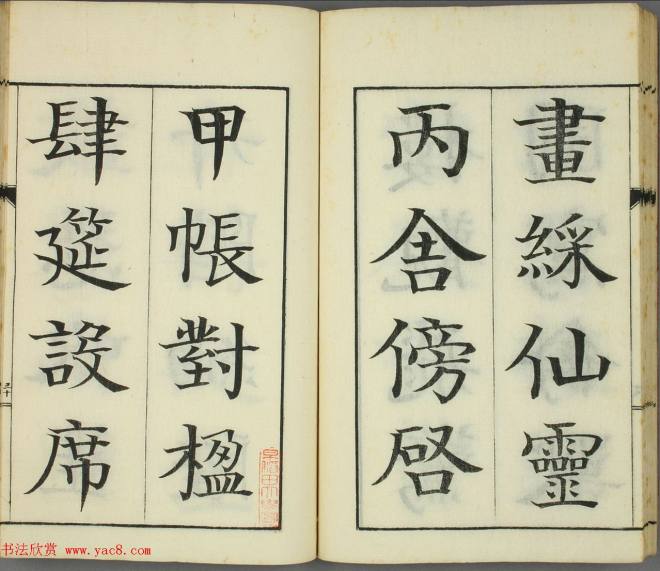 畫綵仙靈
丙舎傍啓
甲帳對楹
肆筵設席
三十
书法欣赏 www.yac8.com